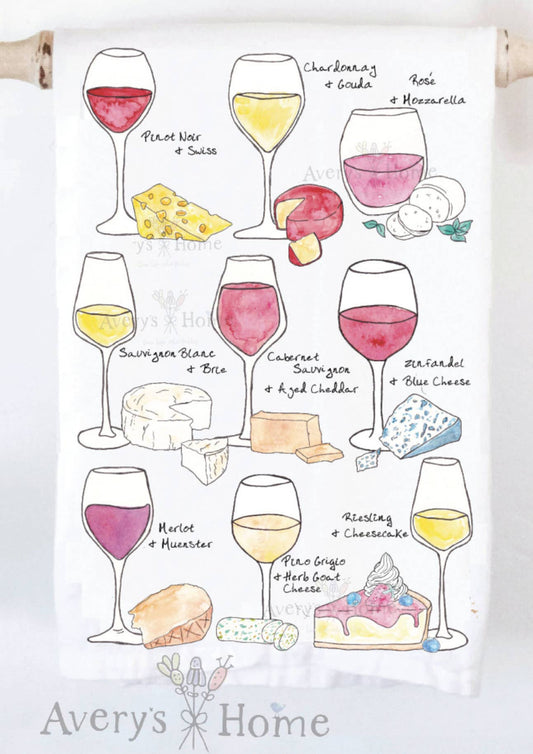 Pinot Noir
& Swiss
Chardonnay
& Gouda
Rosé
& Mozzarella
Avery's Home
Avery's Home
Sauvignon Blanc
& Brie
Cabernet
Sauvignon
& Aged Cheddar
Zinfandel
& Blue Cheese
Avery's Home
Merlot
& Muenster
Pino Grigio
& Herb Goat
Cheese
Riesling
& Cheesecake
Avery's Home
Avery's Home